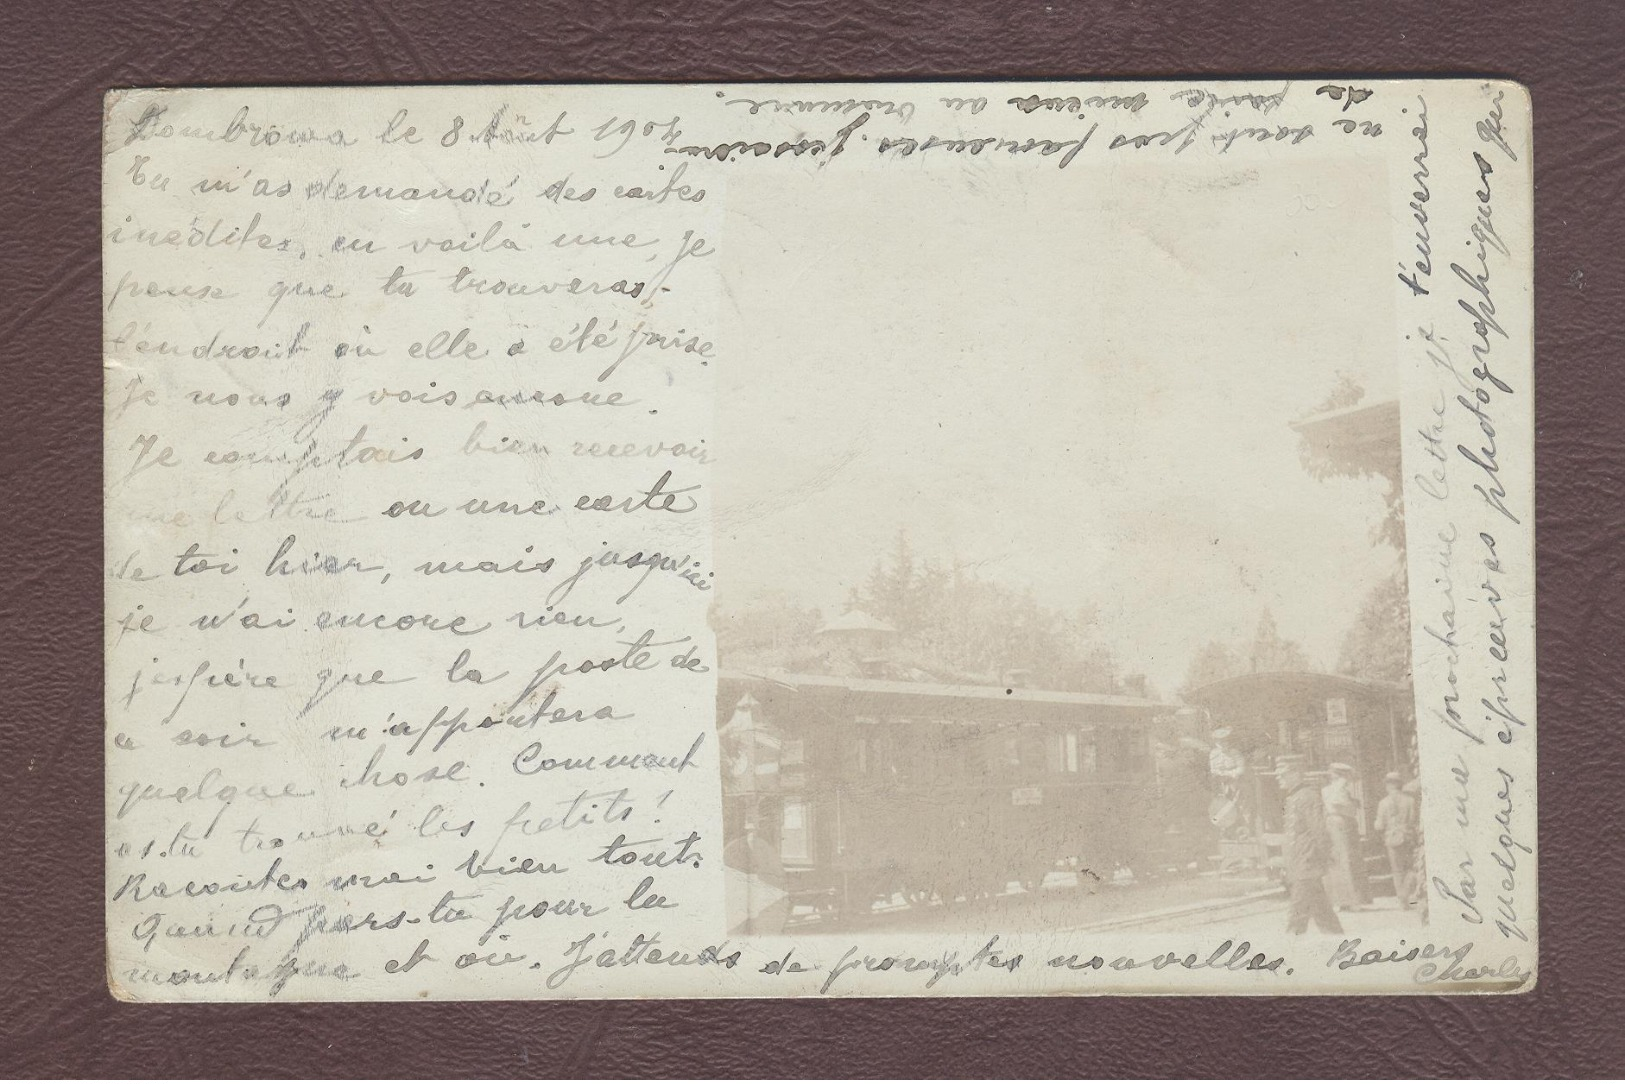 Dombrowa le 8 Aout 1904
Tu m'as demandé des cartes
inédites, en voilà une, je
pense que tu trouveras
l'endroit où elle a été prise.
Je nous y vois encore.
Je comptais bien recevoir
une lettre ou une carte
de toi hier, mais jusqu'ici
je n'ai encore rien,
j'espère que la poste de
ce soir m'apportera
quelque chose. Comment
as-tu trouvé les petits!
Racontes moi bien tout.
Quand pars-tu pour la
montagne et où. J'attends de promptes nouvelles. Baisers
Charles
Par une prochaine lettre je t'enverrai
quelques épreuves photographiques qui
ne sont pas fameuses. J'essaierai
de faire mieux au Vram